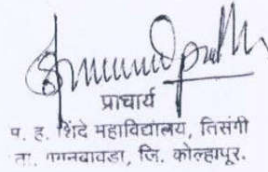 प्राचार्य
प. ह. शिंदे महाविद्यालय, तिसंगी
ता. गगनबावडा, जि. कोल्हापूर.